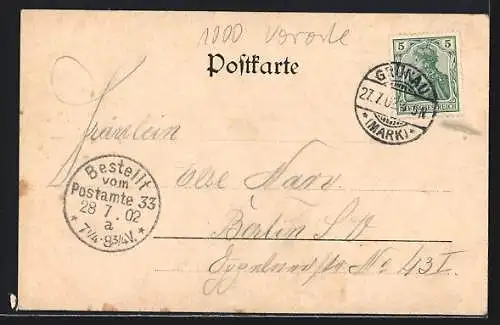 1000 Vororte
Postkarte
5 5
DEUTSCHES REICH
GRÜNAU
27.7.02
*(MARK)*
Fräulein
Bestellt
vom
Postamte 33
28 7. 02
a
* 7¼-8¾V. *
Else Narv.
Berlin S.O
No 43 I.